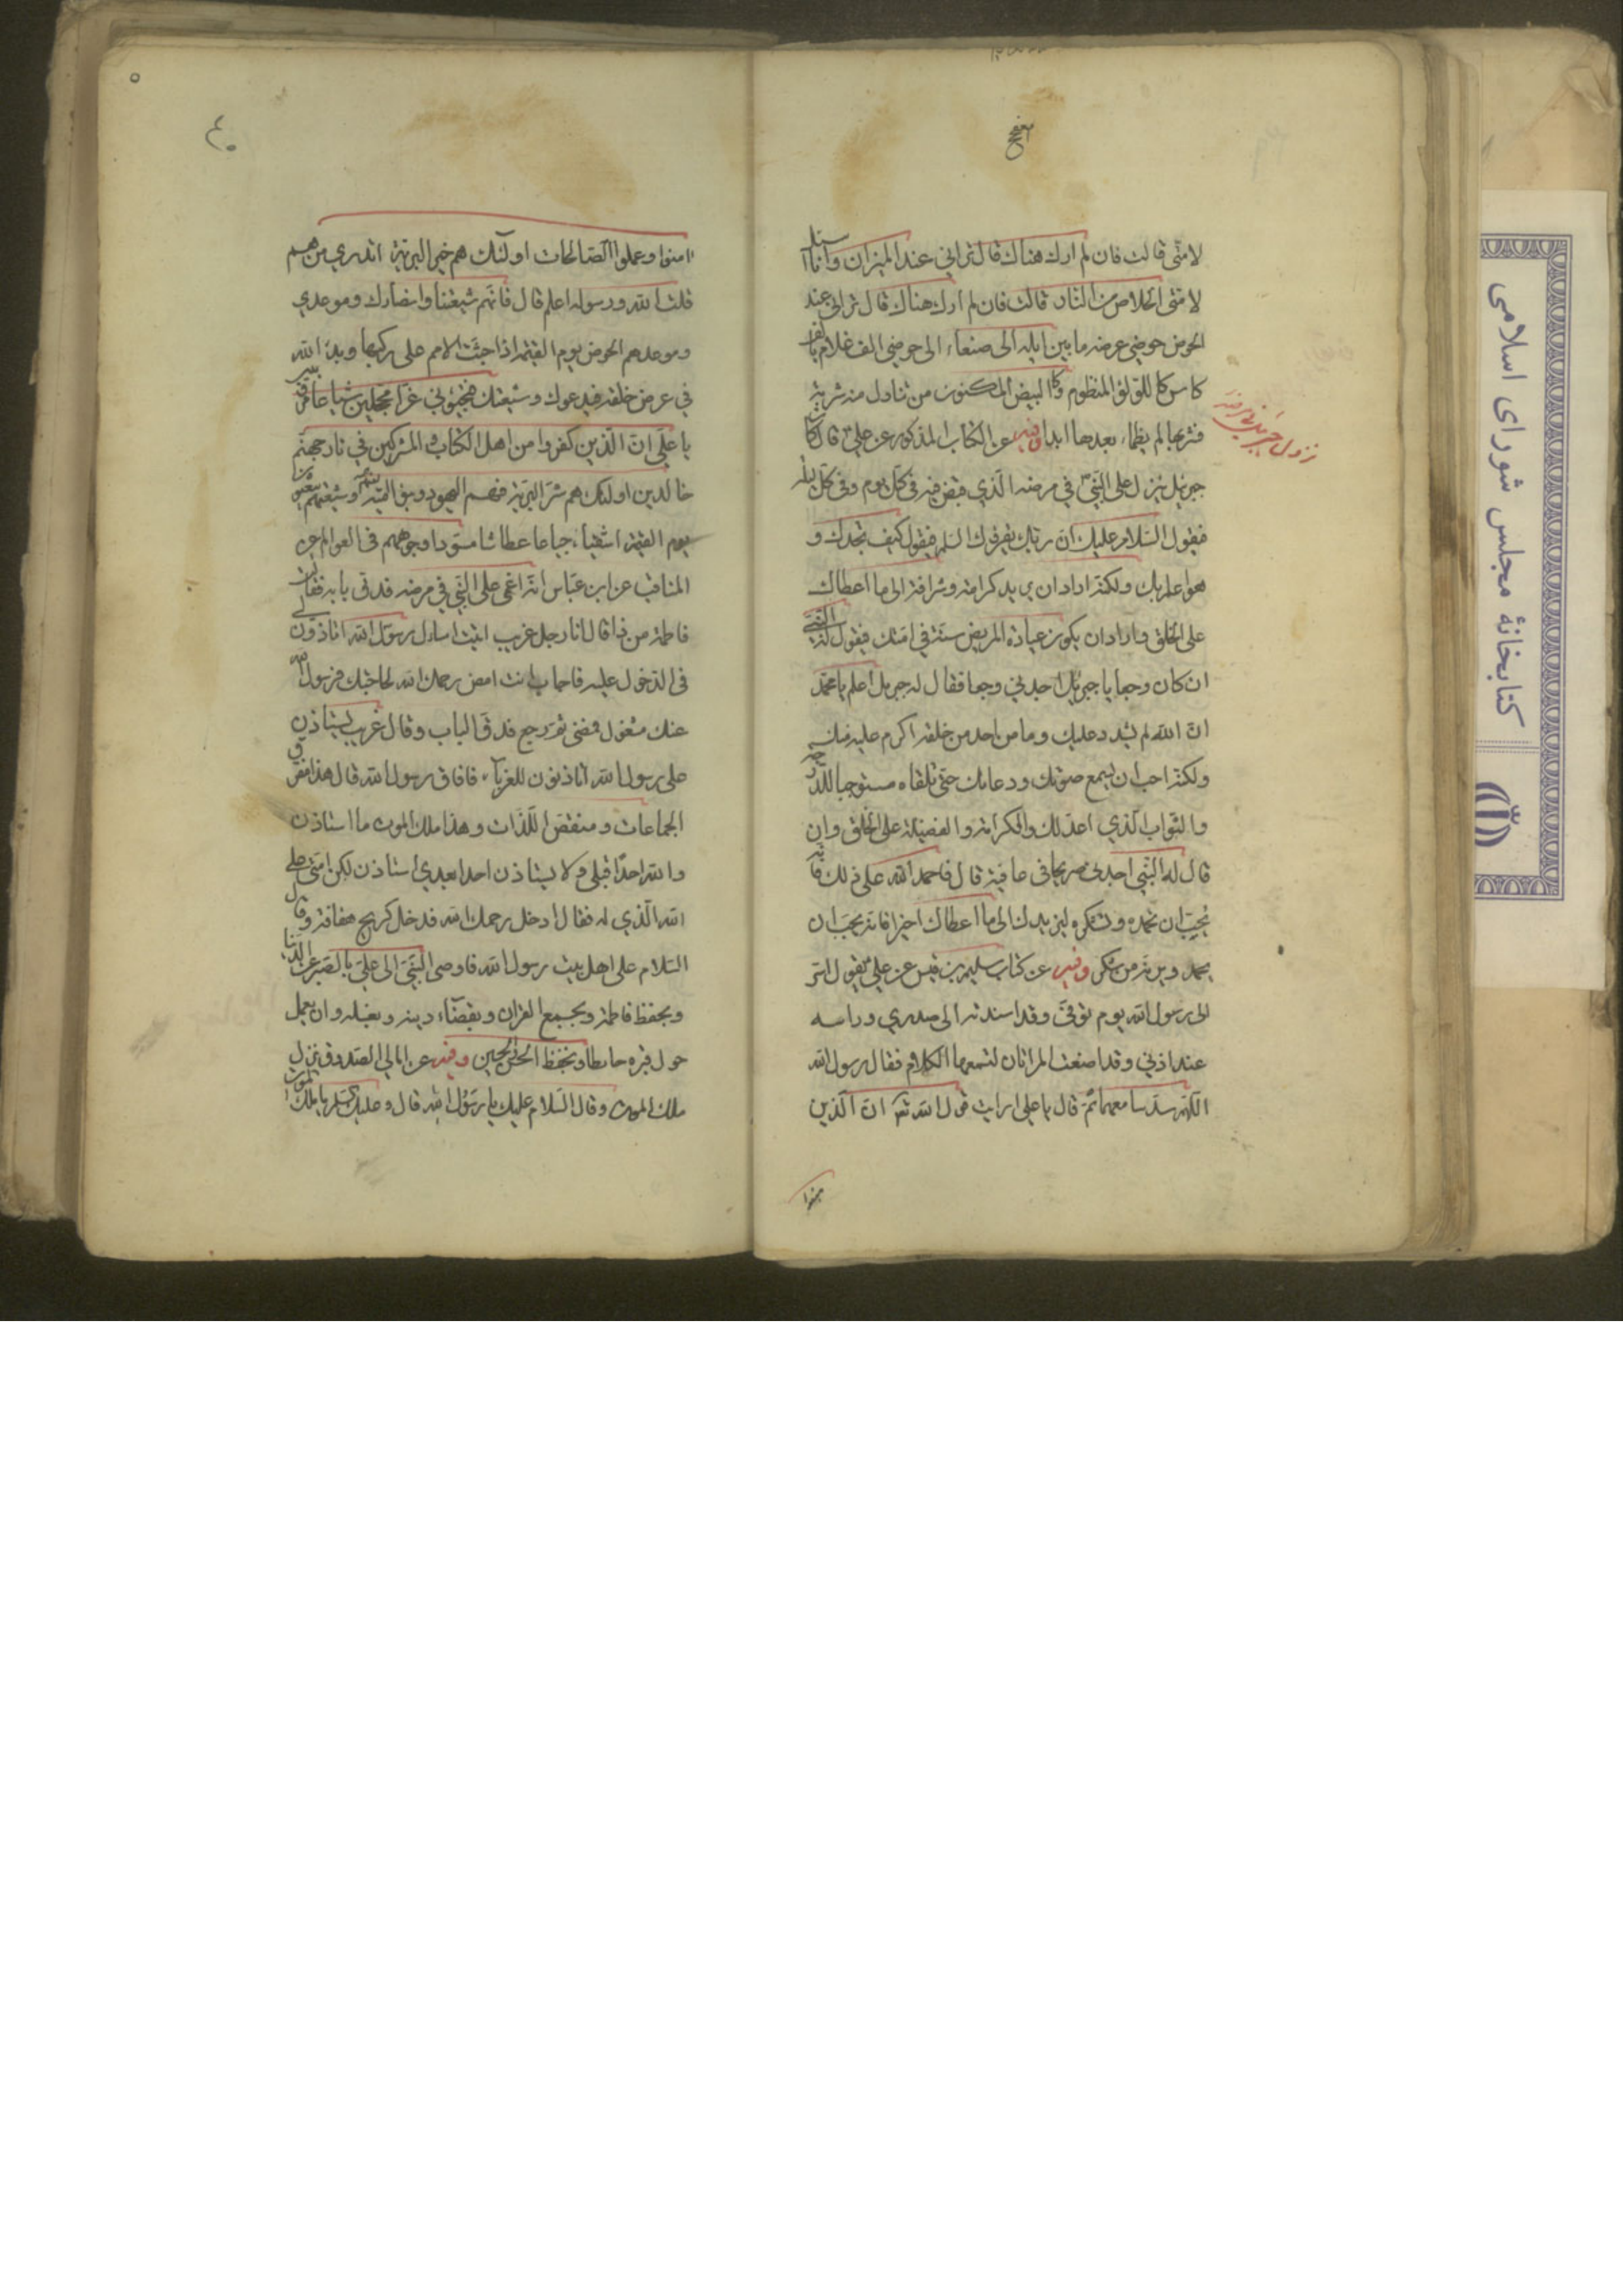 لامتی قالت فان لم ارك هناك قال ترانی عند المیزان وانا اسئل
لامتی الخلاص من النار قالت فان لم ارك هناك قال ترانی عند
الحوض حوضی عرضه ما بین ایله الی صنعاء الی حوضی الف غلام بالف
كاس كاللؤلؤ المنظوم وكالبیض المكنون من تناول منه شربة
فشربها لم یظماء بعدها ابدا وفیه عن الكتاب المذكور عن علی قال كان
جبرئیل ینزل علی النبی فی مرضه الذی قبض فیه فی كل یوم وفی كل لیلة
فیقول السلام علیك ان ربك یقرئك السلم فیقول كیف تجدك و
هو اعلم بك ولكنه اراد ان یزیدك كرامة وشرافة الی ما اعطاك
علی الخلق واراد ان یكون عیادة المریض سنة فی امتك فیقول له النبی
ان كان وجعا یا جبرئیل اجدنی وجعا فقال له جبرئیل اعلم یا محمد
ان الله لم یشدد علیك وما من احد من خلقه اكرم علیه منك
ولكنه احب ان یسمع صوتك ودعائك حتی تلقاه مستوجبا للدرجة
والثواب الذی اعد لك والكرامة والفضیلة علی الخلق وان
قال له النبی اجدنی مریحا فی عافیة قال فاحمد الله علی ذلك فانه
یحب ان تحمده وتشكره لیزیدك الی ما اعطاك خیرا فانه یحب ان
یحمد ویزید من شكر وفیه عن كتاب سلیم بن قیس عن علی یقول اسر
الی رسول الله یوم توفی وقد اسندته الی صدری وراسه
عند اذنی وقد اصغت المراتان لتسمعها الكلام فقال رسول الله
اللهم سد مسامعهما ثم قال یا علی ارایت قول الله ان الذین
امنوا
نزول جبرئیل
امنوا وعملوا الصالحات اولئك هم خیر البریة اتدری من هم
قلت الله ورسوله اعلم قال فانهم شیعتنا وانصارك وموعدی
وموعدهم الحوض یوم القیمة اذا جثت الامم علی ركبها وبدء الله
فی عرض خلقه فیدعوك وشیعتك فتجیؤنی غرا محجلین شباعا
یا علی ان الذین كفروا من اهل الكتاب والمشركین فی نار جهنم
خالدین اولئك هم شر البریة فهم الیهود وبنو امیة وشیعتهم یبعثون
یوم القیمة اشقیاء جیاعا عطاشا مسودا وجوههم فی العوالم عن
المناقب عن ابن عباس انه اغمی علی النبی فی مرضه فدق بابه فقالت
فاطمة من ذا قال انا رجل غریب اتیت اسال رسول الله اتاذنون لی
فی الدخول علیه فاجابت امض رحمك الله لحاجتك فرسول الله
عنك مشغول فمضی ثم رجع فدق الباب وقال غریب یستاذن
علی رسول الله اتاذنون للغرباء فافاق رسول الله قال هذا مفرق
الجماعات ومنقض اللذات وهذا ملك الموت ما استاذن
والله احدا قبلی ولا یستاذن احدا بعدی استاذن لكرامتی علی
الله الذی له فقال ادخل رحمك الله فدخل كریح هفافة وقال
السلام علی اهل بیت رسول الله فاوصی النبی الی علی بالصبر عن الدنیا
وبحفظ فاطمة وبجمع القران وبقضاء دینه وبغسله وان یعمل
حول قبره حائطا وبحفظ الحسن والحسین وفیه عن امالی الصدوق نزل
ملك الموت وقال السلام علیك یا رسول الله قال وعلیك السلم یا ملك الموت
۴۰
كتابخانۀ مجلس شورای اسلامی